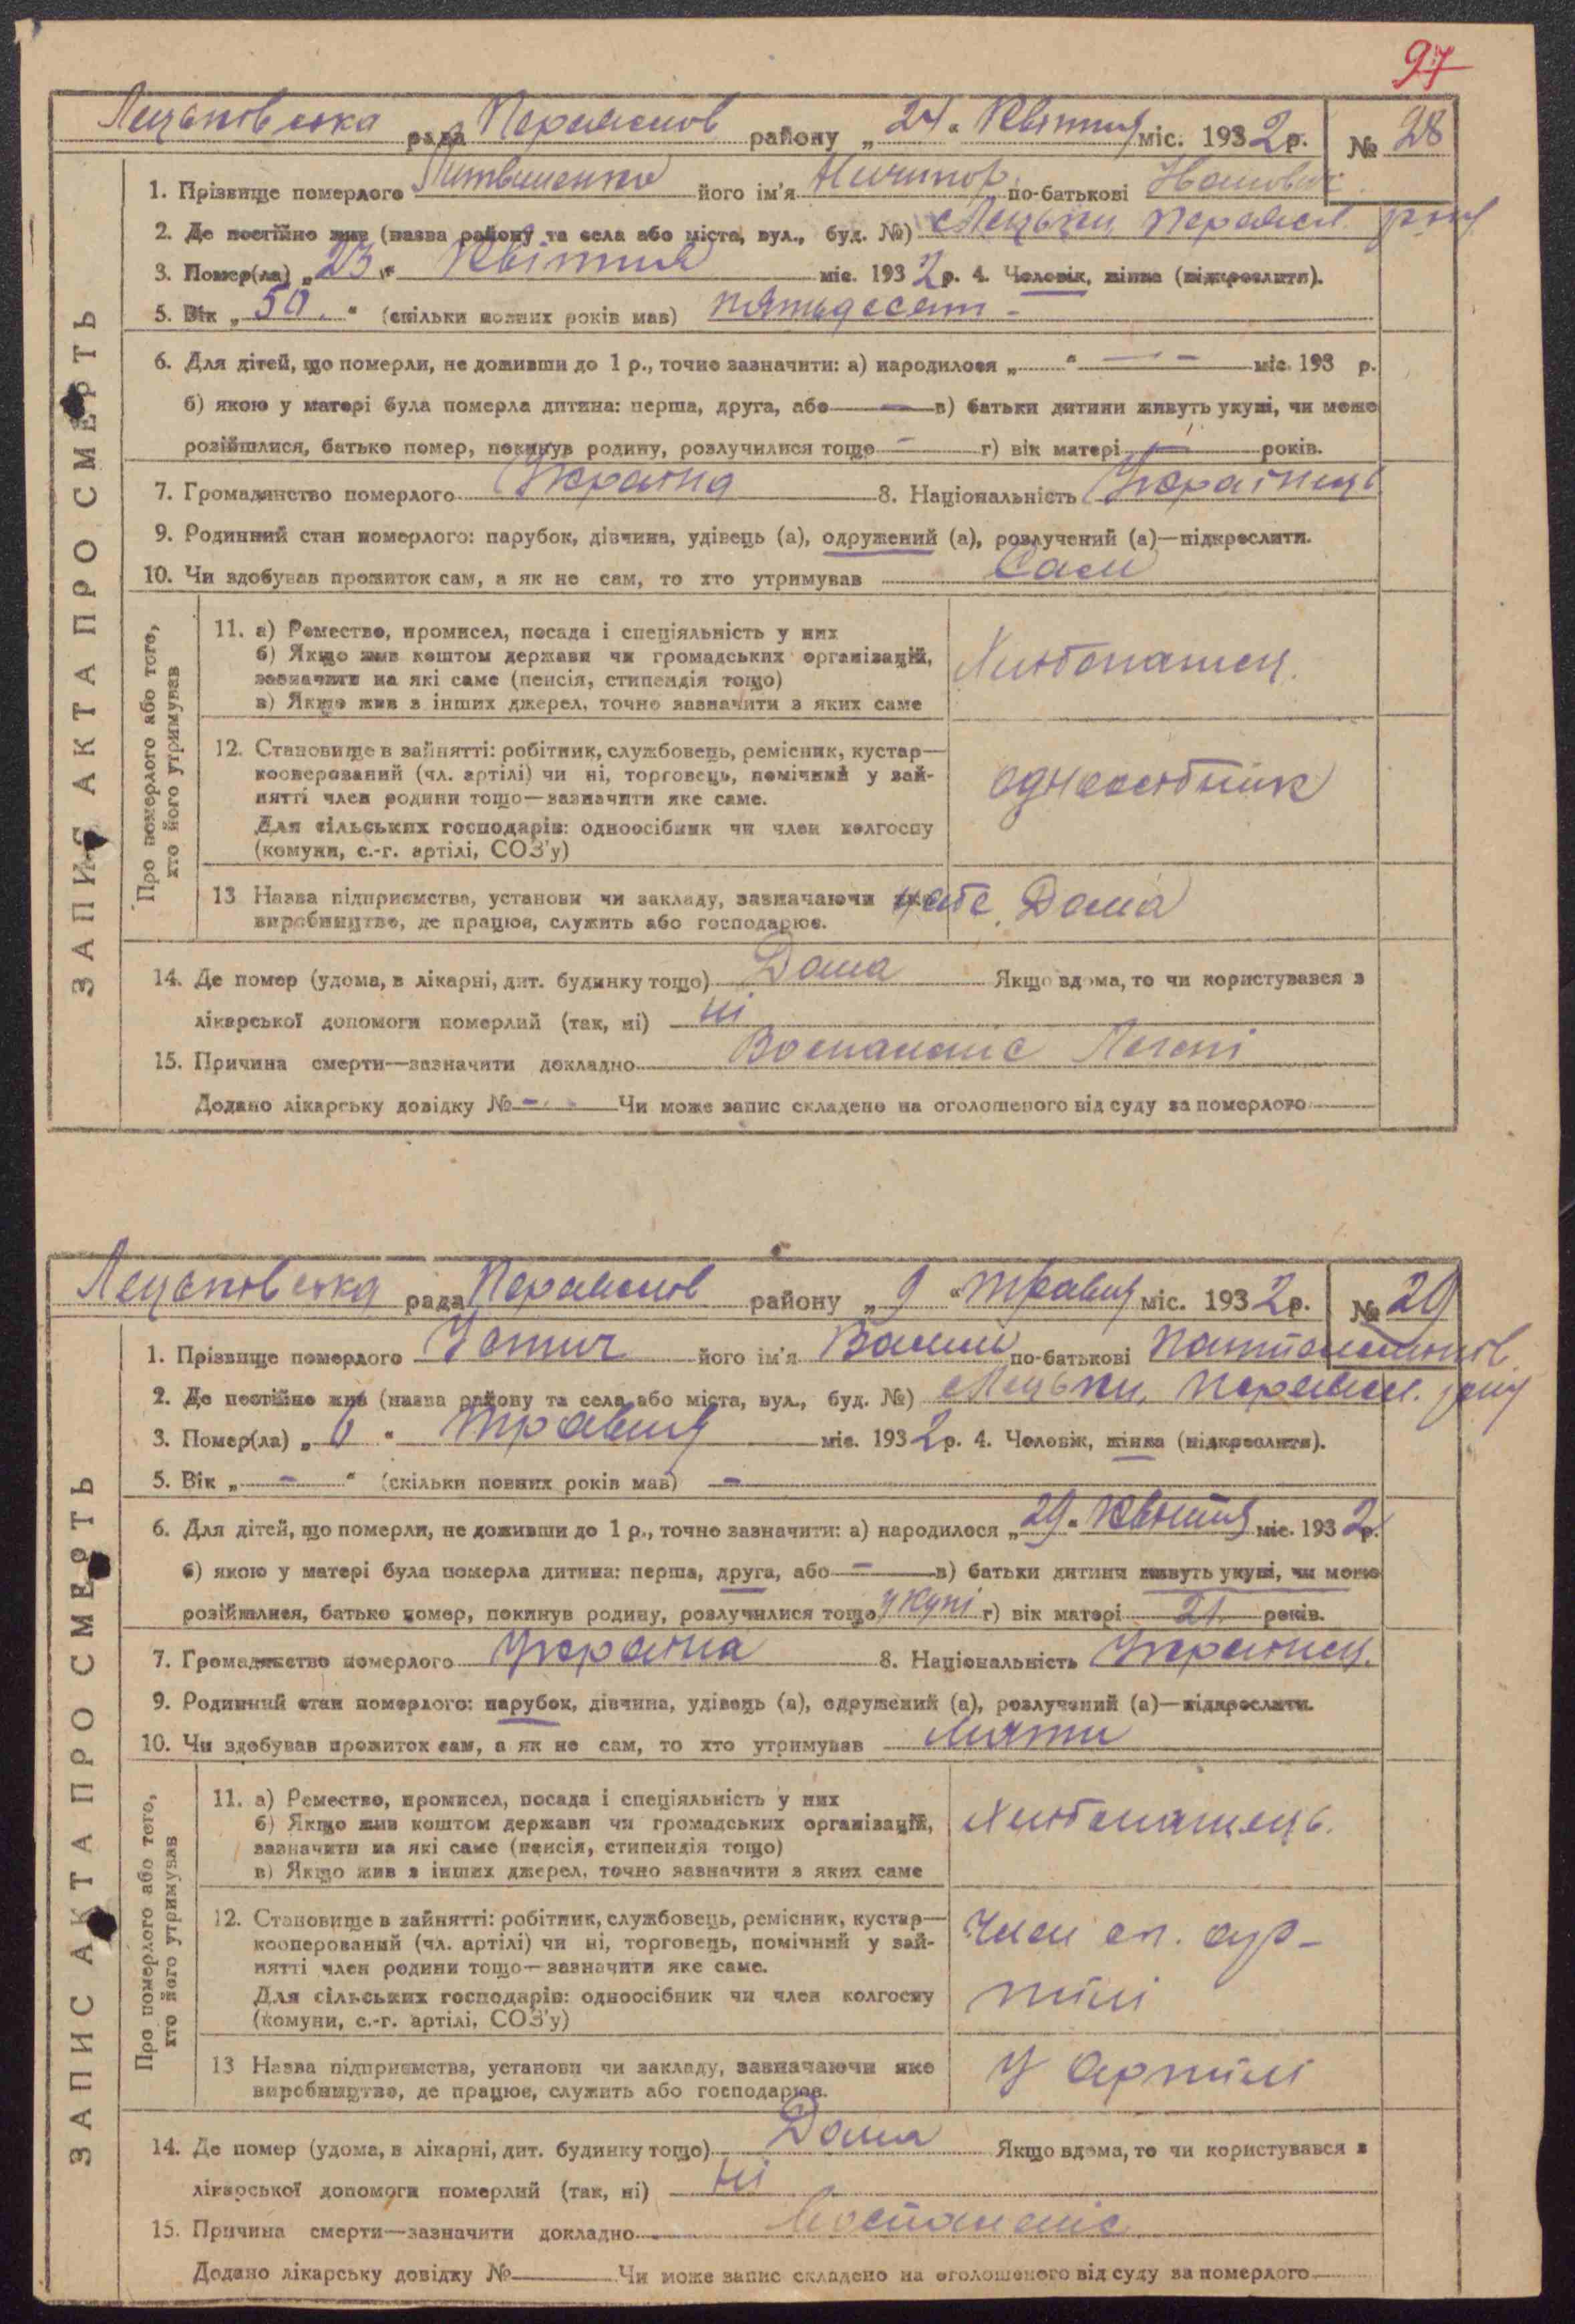 97
Лецьковська рада Переяслов району „24“ Квітня міс. 1932 р. № 28
1. Прізвище померлого Литвиненко його ім'я Ничипор по-батькові Іванович
2. Де постійно жив (назва району та села або міста, вул., буд. №) с Лецьки Переясл. рону
3. Помер(ла) „23“ Квітня міс. 1932 р. 4. Человік, жінка (підкреслити).
5. Вік „50.“ (скільки повних років мав) пятьдесят -
6. Для дітей, що померли, не доживши до 1 р., точно зазначити: а) народилося „ “ — - міс. 193 р.
б) якою у матері була померла дитина: перша, друга, або — в) батьки дитини живуть укупі, чи може
розійшлися, батько помер, покинув родину, розлучилися тощо - г) вік матері — років.
7. Громадянство померлого Україна 8. Національність Українець
9. Родинний стан померлого: парубок, дівчина, удівець (а), одружений (а), розлучений (а)—підкреслити.
10. Чи здобував прожиток сам, а як не сам, то хто утримував Сам
ЗАПИС АКТА ПРО СМЕРТЬ
Про померлого або того, хто його утримував
11. а) Ремество, промисел, посада і спеціяльність у них
б) Якщо жив коштом держави чи громадських організацій,
зазначити на які саме (пенсія, стипендія тощо)
в) Якщо жив з інших джерел, точно зазначити з яких саме
Хлібопашец.
12. Становище в зайнятті: робітник, службовець, ремісник, кустар—
кооперований (чл. артілі) чи ні, торговець, помічний у зай-
нятті член родини тощо—зазначити яке саме.
Для сільських господарів: одноосібник чи член колгоспу
(комуни, с.-г. артілі, СОЗ'у)
одноособник
13 Назва підприємства, установи чи закладу, зазначаючи яке
виробництво, де працює, служить або господарює.
у себе Дома
14. Де помер (удома, в лікарні, дит. будинку тощо) Дома Якщо вдома, то чи користувався з
лікарської допомоги померлий (так, ні) ні
15. Причина смерти—зазначити докладно Воспаленіє Легені
Додано лікарську довідку № - Чи може запис складено на оголошеного від суду за померлого
Лецьковська рада Переяслов району „9“ травня міс. 1932 р. № 29
1. Прізвище померлого Устич його ім'я по-батькові
2. Де постійно жив (назва району та села або міста, вул., буд. №) с Лецьки, Переясл. рону
3. Помер(ла) „6“ травня міс. 1932 р. 4. Человік, жінка (підкреслити).
5. Вік „ - “ (скільки повних років мав) -
6. Для дітей, що померли, не доживши до 1 р., точно зазначити: а) народилося „29“ Квітня міс. 1932 р.
б) якою у матері була померла дитина: перша, друга, або - в) батьки дитини живуть укупі, чи може
розійшлися, батько помер, покинув родину, розлучилися тощо укупі г) вік матері 21 років.
7. Громадянство померлого Україна 8. Національність Українец.
9. Родинний стан померлого: парубок, дівчина, удівець (а), одружений (а), розлучений (а)—підкреслити.
10. Чи здобував прожиток сам, а як не сам, то хто утримував Мати
ЗАПИС АКТА ПРО СМЕРТЬ
Про померлого або того, хто його утримував
11. а) Ремество, промисел, посада і спеціяльність у них
б) Якщо жив коштом держави чи громадських організацій,
зазначити на які саме (пенсія, стипендія тощо)
в) Якщо жив з інших джерел, точно зазначити з яких саме
Хлібопашець.
12. Становище в зайнятті: робітник, службовець, ремісник, кустар—
кооперований (чл. артілі) чи ні, торговець, помічний у зай-
нятті член родини тощо—зазначити яке саме.
Для сільських господарів: одноосібник чи член колгоспу
(комуни, с.-г. артілі, СОЗ'у)
Член сп. ар-
тілі
13 Назва підприємства, установи чи закладу, зазначаючи яке
виробництво, де працює, служить або господарює.
У Артілі
14. Де помер (удома, в лікарні, дит. будинку тощо) Дома Якщо вдома, то чи користувався з
лікарської допомоги померлий (так, ні) ні
15. Причина смерти—зазначити докладно Воспаленіє
Додано лікарську довідку № Чи може запис складено на оголошеного від суду за померлого